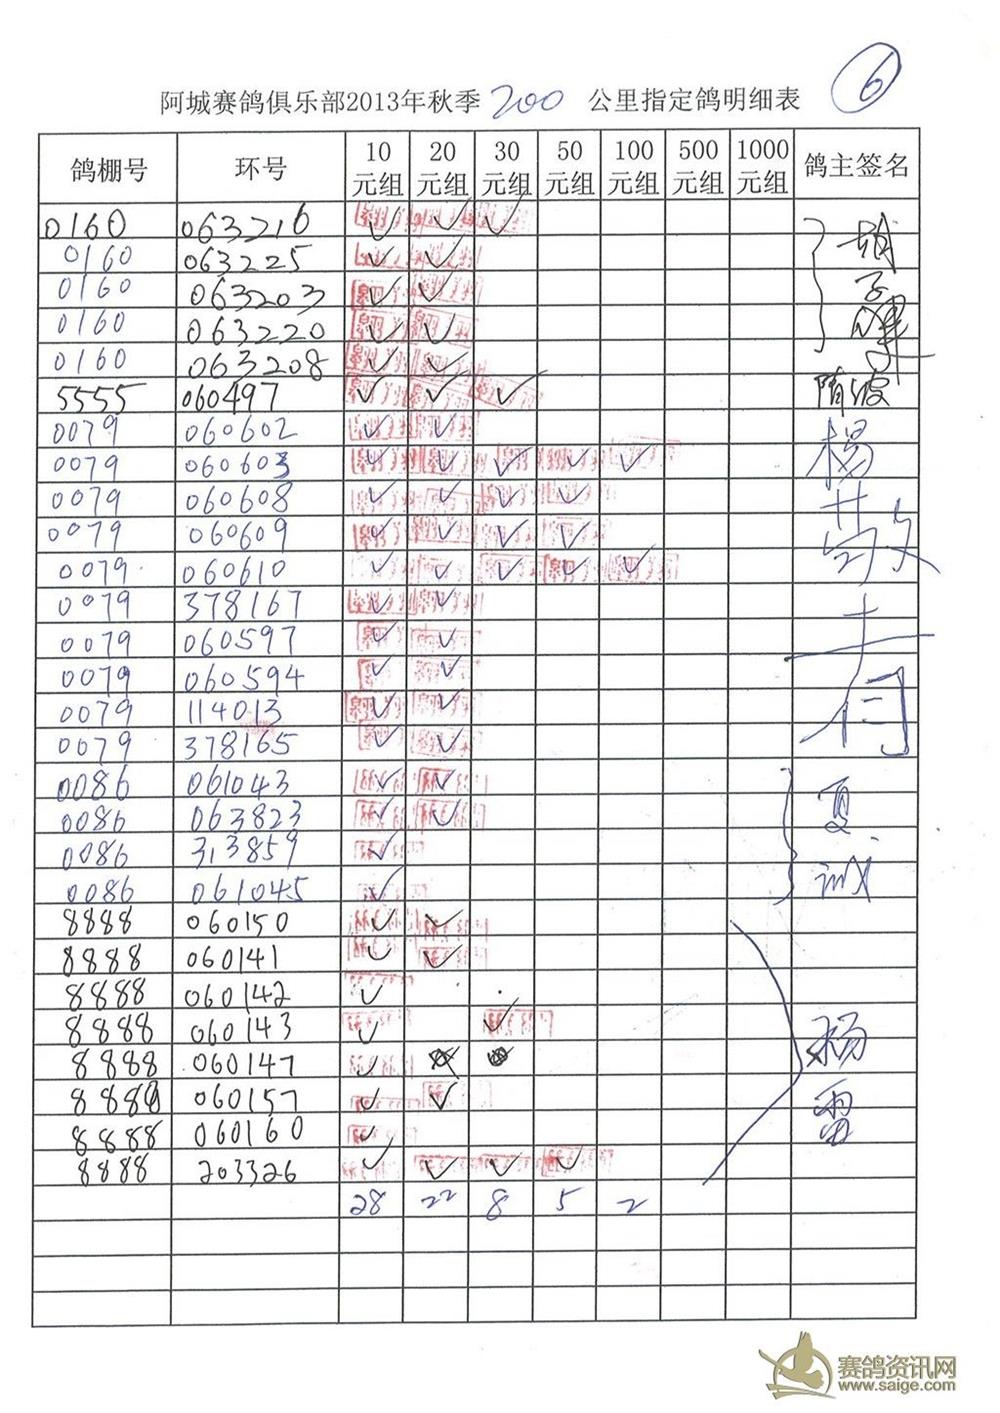 6
阿城赛鸽俱乐部2013年秋季 200 公里指定鸽明细表
鸽棚号 环号 10元组 20元组 30元组 50元组 100元组 500元组 1000元组 鸽主签名
0160 063216 ✓ ✓ ✓
0160 063225 ✓ ✓
0160 063203 ✓ ✓
0160 063220 ✓ ✓
0160 063208 ✓ ✓
5555 060497 ✓ ✓ ✓ 隋波
0079 060602 ✓ ✓
0079 060603 ✓ ✓ ✓ ✓ ✓ 杨
0079 060608 ✓ ✓ ✓ ✓
0079 060609 ✓ ✓ ✓ ✓
0079 060610 ✓ ✓ ✓ ✓ ✓
0079 378167 ✓ ✓
0079 060597 ✓ ✓
0079 060594 ✓ ✓
0079 114013 ✓ ✓
0079 378165 ✓ ✓
0086 061043 ✓ ✓
0086 063823 ✓ ✓ 夏
0086 313859 ✓
0086 061045 ✓ 诚
8888 060150 ✓ ✓
8888 060141 ✓ ✓
8888 060142 ✓
8888 060143 ✓ ✓ 杨
8888 060147 ✓
8888 060157 ✓ ✓ 雷
8888 060160 ✓
8888 203326 ✓ ✓ ✓ ✓
28 22 8 5 2
赛鸽资讯网
www.saige.com